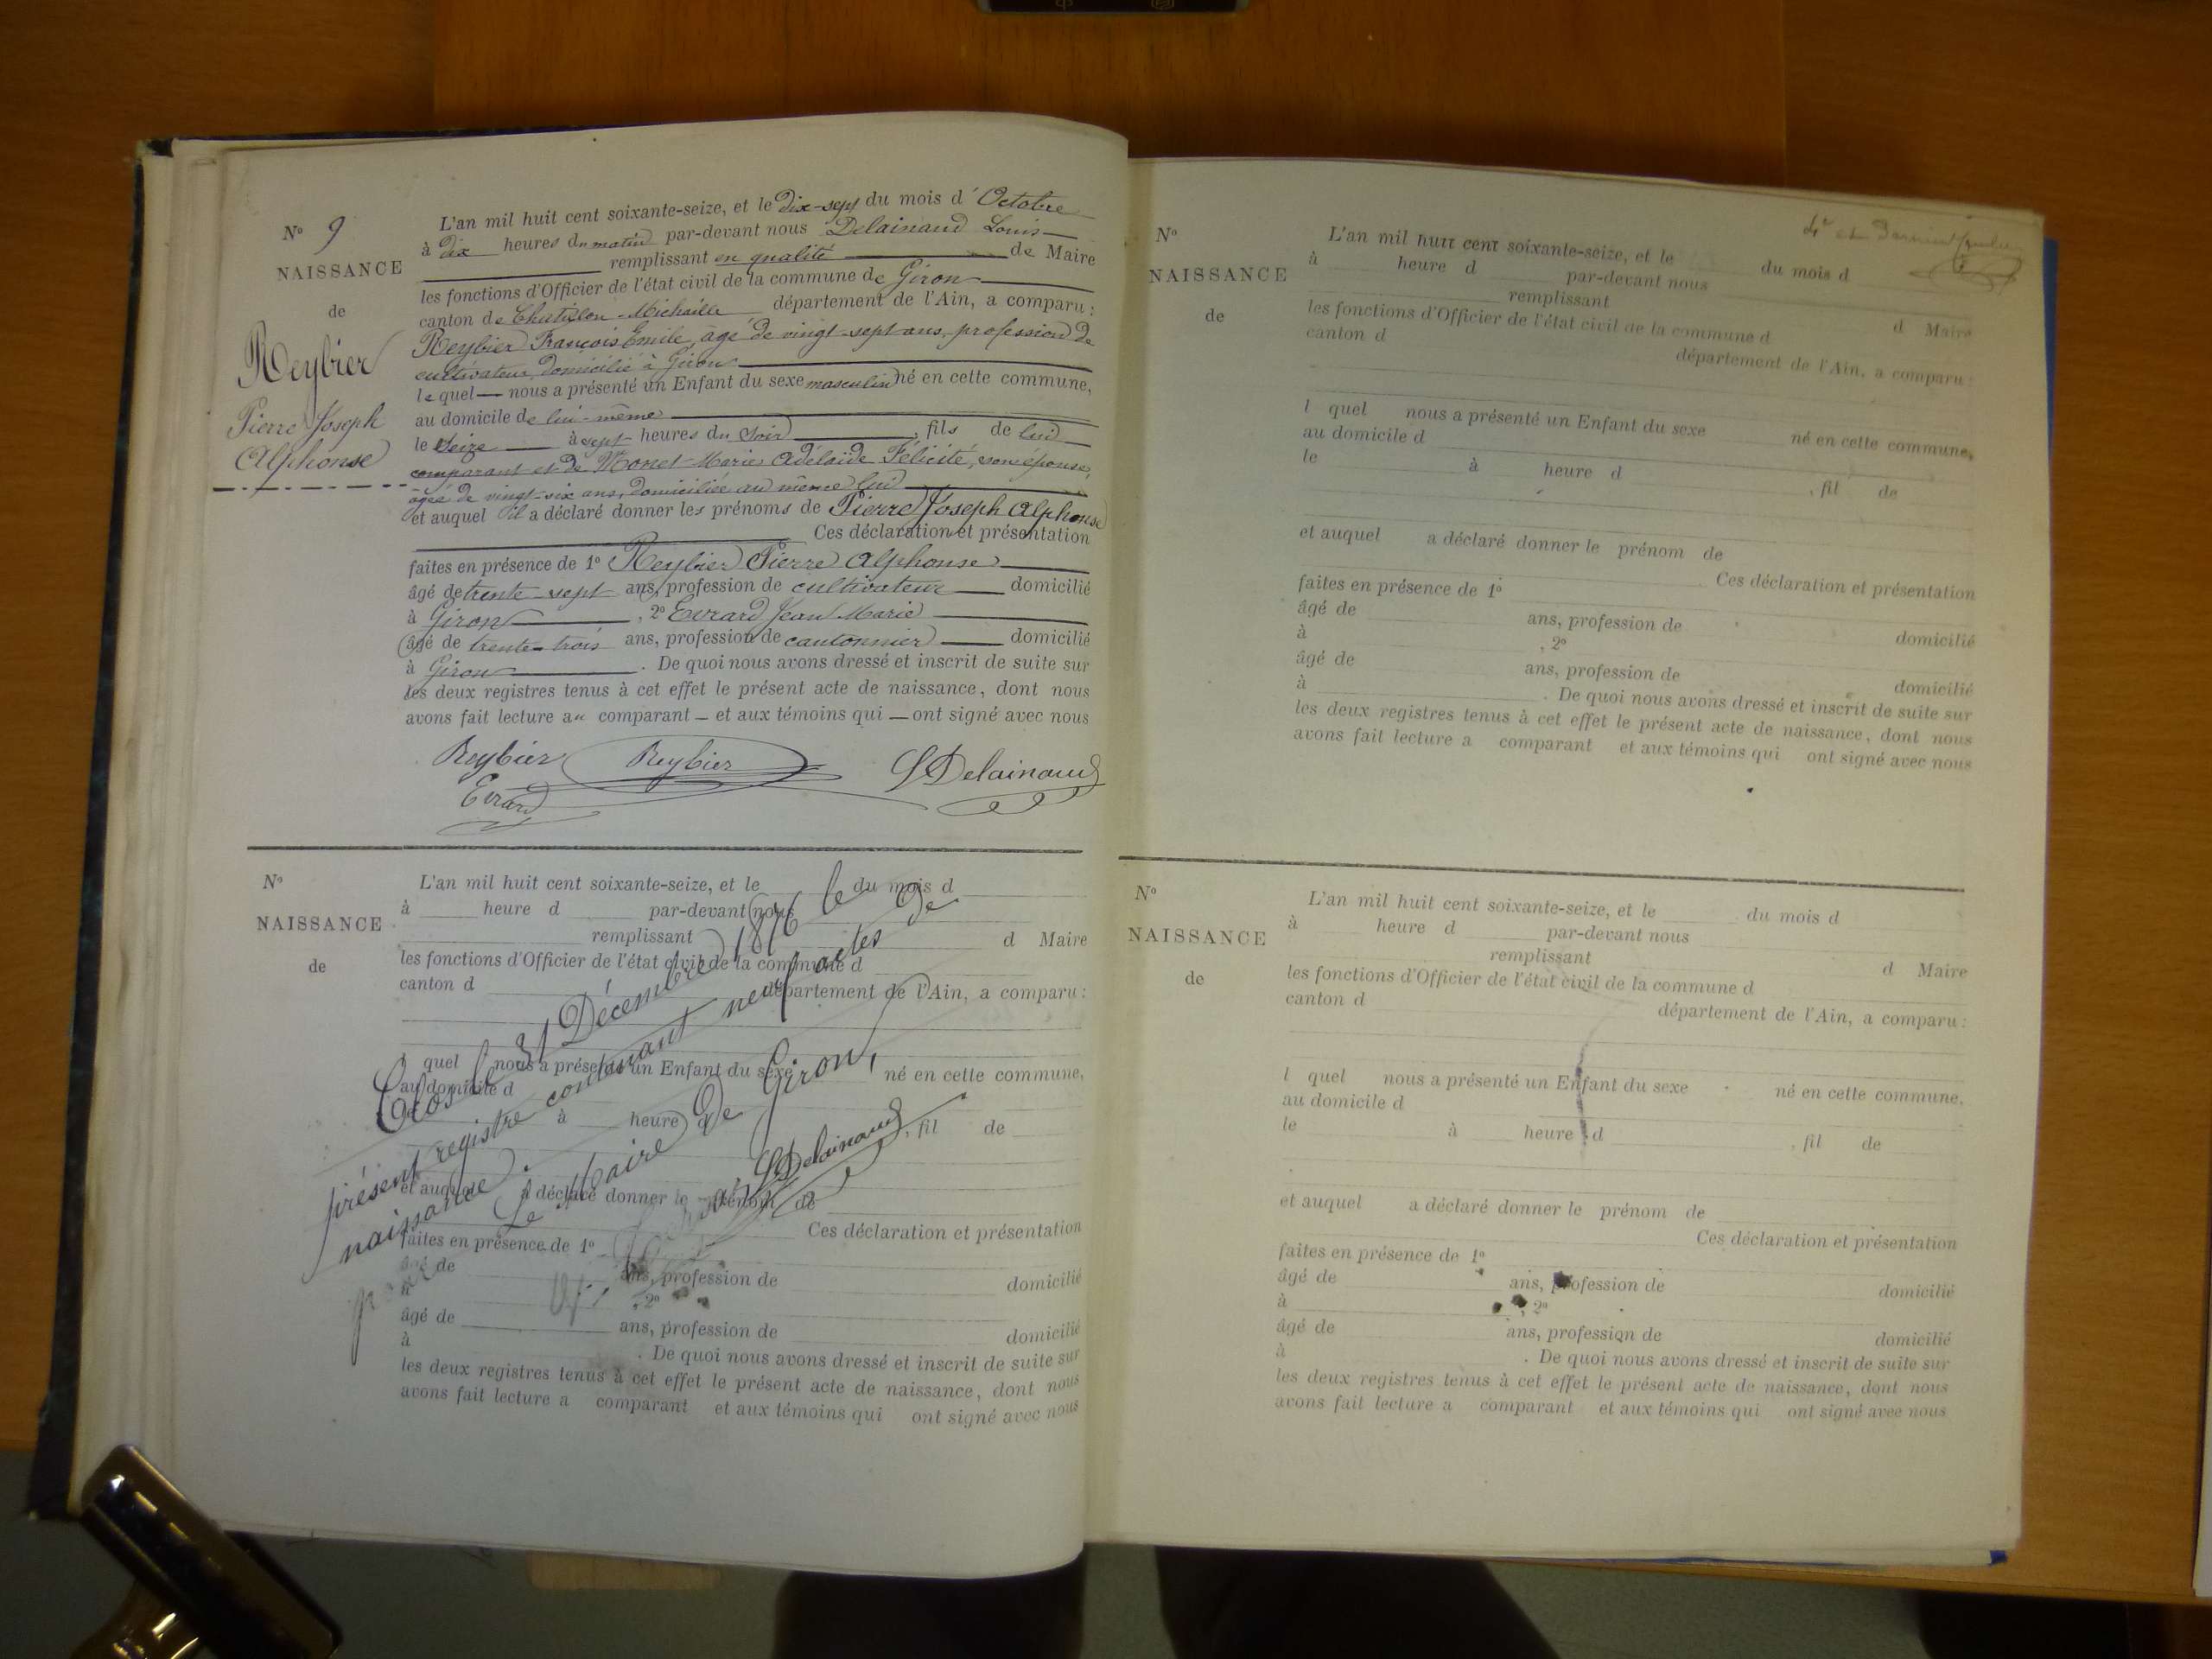 N° 9
NAISSANCE
de
Reybier
Pierre Joseph
Alphonse
L'an mil huit cent soixante-seize, et le dix-sept du mois d'Octobre
à dix heures du matin par-devant nous Delainaud Louis
remplissant en qualité de Maire
les fonctions d'Officier de l'état civil de la commune de Giron
canton de Chatillon-Michaille département de l'Ain, a comparu :
Reybier François Emile, âgé de vingt-sept ans, profession de
cultivateur, domicilié à Giron
lequel nous a présenté un Enfant du sexe masculin né en cette commune,
au domicile de lui-même
le seize à sept heures du soir, fils de lui
comparant et de Monet Marie Adélaide Félicité, son épouse,
agée de vingt-six ans, domiciliée au même lieu
et auquel il a déclaré donner les prénoms de Pierre Joseph Alphonse
Ces déclaration et présentation
faites en présence de 1° Reybier Pierre Alphonse
âgé de trente-sept ans, profession de cultivateur domicilié
à Giron, 2° Evrard Jean Marie
âgé de trente-trois ans, profession de cantonnier domicilié
à Giron. De quoi nous avons dressé et inscrit de suite sur
les deux registres tenus à cet effet le présent acte de naissance, dont nous
avons fait lecture au comparant et aux témoins qui ont signé avec nous
Reybier Reybier LDelainaud
Evrard
N°
NAISSANCE
de
L'an mil huit cent soixante-seize, et le du mois d
à heure d par-devant nous
remplissant d Maire
les fonctions d'Officier de l'état civil de la commune d
canton d département de l'Ain, a comparu :
l quel nous a présenté un Enfant du sexe né en cette commune,
au domicile d
le à heure d , fil de
et auquel a déclaré donner le prénom de
Ces déclaration et présentation
faites en présence de 1°
âgé de ans, profession de domicilié
à , 2°
âgé de ans, profession de domicilié
à . De quoi nous avons dressé et inscrit de suite sur
les deux registres tenus à cet effet le présent acte de naissance, dont nous
avons fait lecture a comparant et aux témoins qui ont signé avec nous
Clos le 31 Décembre 1876 le
présent registre contenant neuf actes de
naissance.
Le Maire de Giron,
LDelainaud
4e et dernier feuillet
N°
NAISSANCE
de
L'an mil huit cent soixante-seize, et le du mois d
à heure d par-devant nous
remplissant d Maire
les fonctions d'Officier de l'état civil de la commune d
canton d département de l'Ain, a comparu :
l quel nous a présenté un Enfant du sexe né en cette commune,
au domicile d
le à heure d , fil de
et auquel a déclaré donner le prénom de
Ces déclaration et présentation
faites en présence de 1°
âgé de ans, profession de domicilié
à , 2°
âgé de ans, profession de domicilié
à . De quoi nous avons dressé et inscrit de suite sur
les deux registres tenus à cet effet le présent acte de naissance, dont nous
avons fait lecture a comparant et aux témoins qui ont signé avec nous
N°
NAISSANCE
de
L'an mil huit cent soixante-seize, et le du mois d
à heure d par-devant nous
remplissant d Maire
les fonctions d'Officier de l'état civil de la commune d
canton d département de l'Ain, a comparu :
l quel nous a présenté un Enfant du sexe né en cette commune,
au domicile d
le à heure d , fil de
et auquel a déclaré donner le prénom de
Ces déclaration et présentation
faites en présence de 1°
âgé de ans, profession de domicilié
à , 2°
âgé de ans, profession de domicilié
à . De quoi nous avons dressé et inscrit de suite sur
les deux registres tenus à cet effet le présent acte de naissance, dont nous
avons fait lecture a comparant et aux témoins qui ont signé avec nous